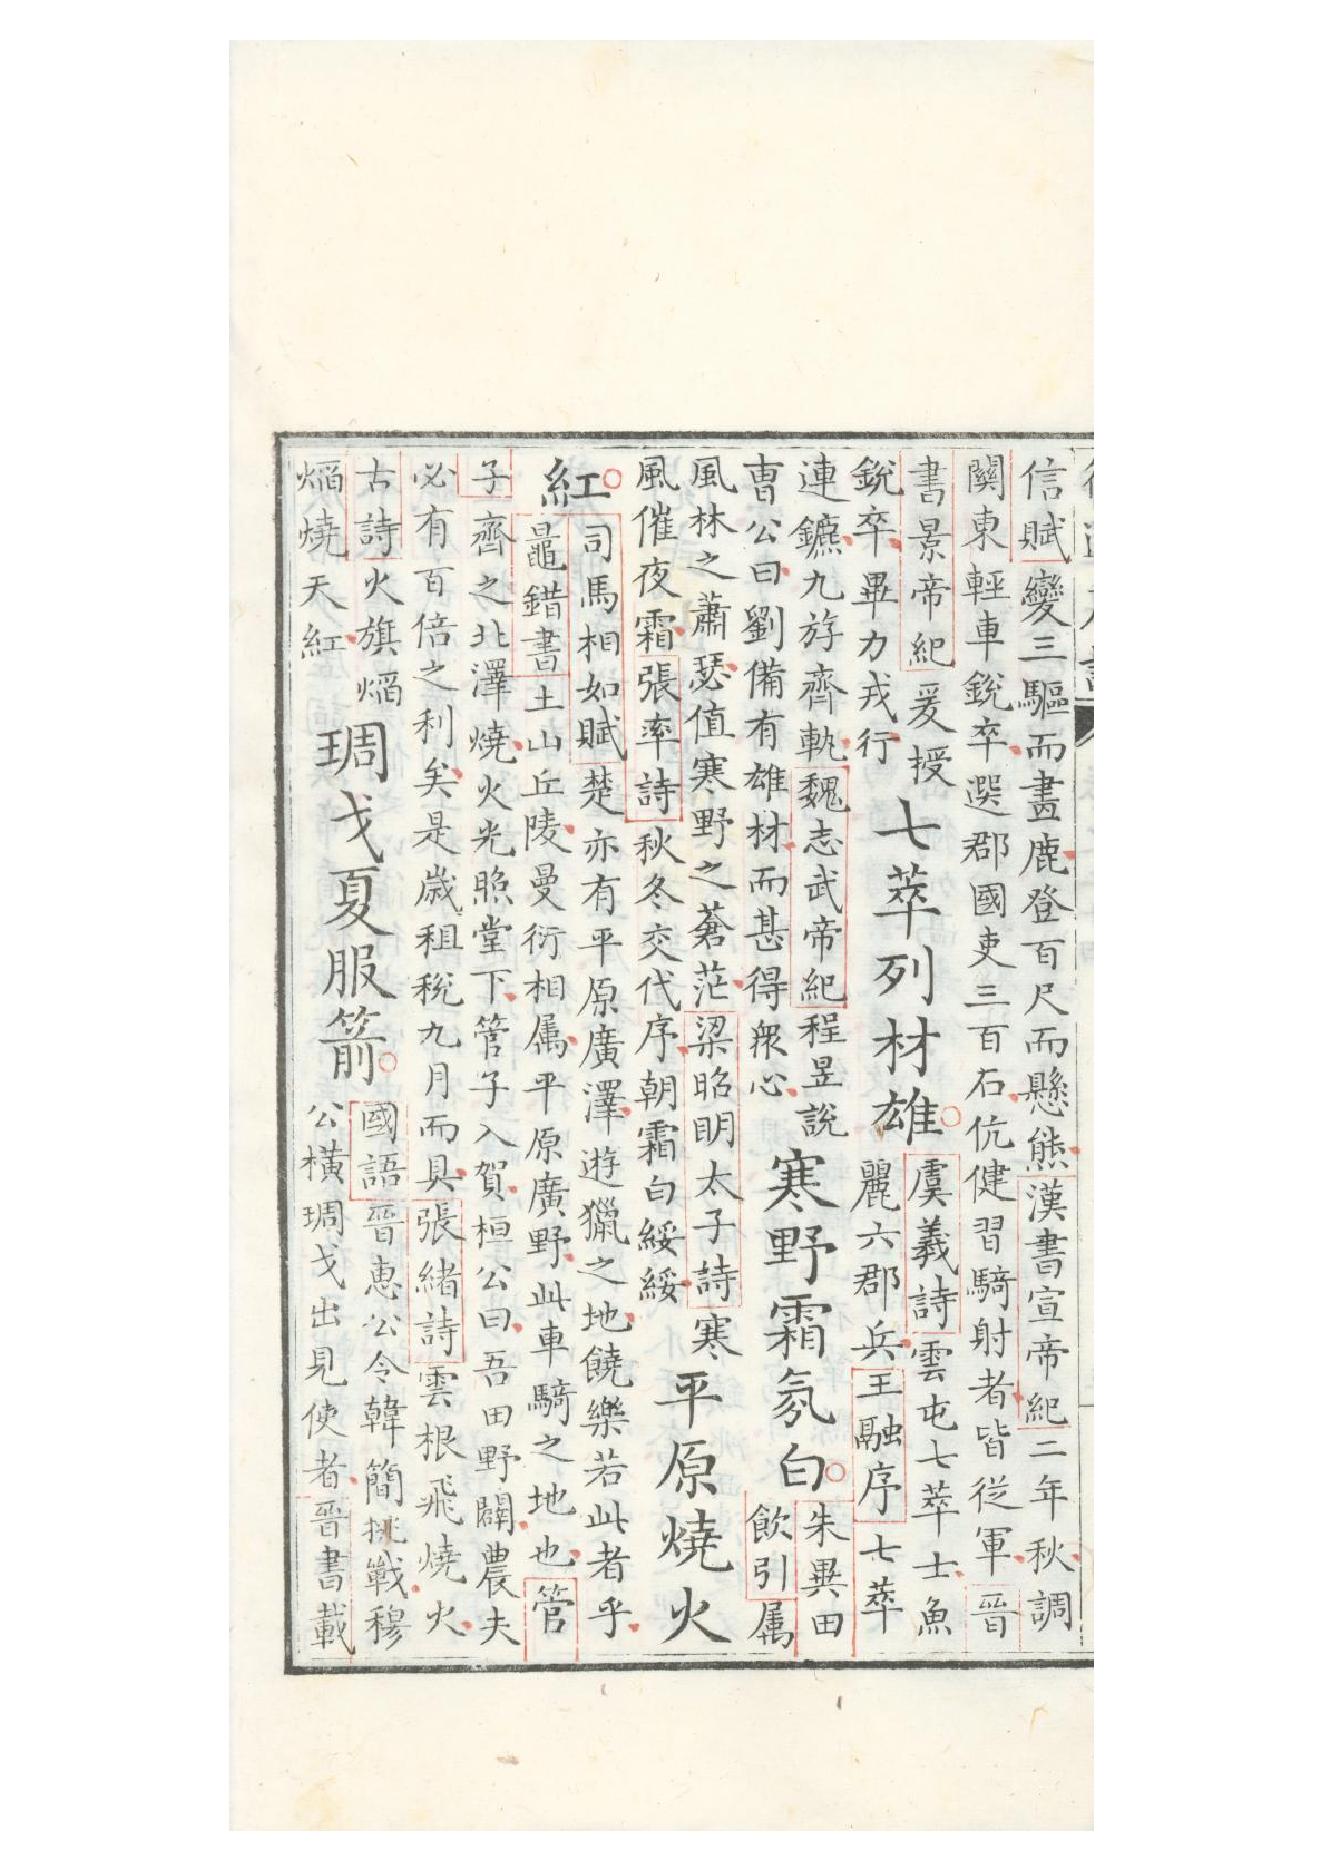 信賦變三驅而畫鹿登百尺而懸熊漢書宣帝紀二年秋調
關東輕車銳卒選郡國吏三百石伉健習騎射者皆從軍晉
書景帝紀爰授
銳卒畢力戎行
七萃列材雄
虞羲詩雲屯七萃士魚
麗六郡兵王融序七萃
連鑣九斿齊軌魏志武帝紀程昱說
曹公曰劉備有雄材而甚得衆心
寒野霜氛白
朱異田
飲引属
風林之蕭瑟值寒野之蒼茫梁昭明太子詩寒
風催夜霜張率詩秋冬交代序朝霜白綏綏
平原燒火
紅
司馬相如賦楚亦有平原廣澤遊獵之地饒樂若此者乎
鼂錯書土山丘陵曼衍相属平原廣野此車騎之地也管
子齊之北澤燒火光照堂下管子入賀桓公曰吾田野闢農夫
必有百倍之利矣是歲租稅九月而具張緒詩雲根飛燒火
古詩火旗熖
熖燒天紅
琱戈夏服箭
國語晉惠公令韓簡挑戰穆
公橫琱戈出見使者晉書載